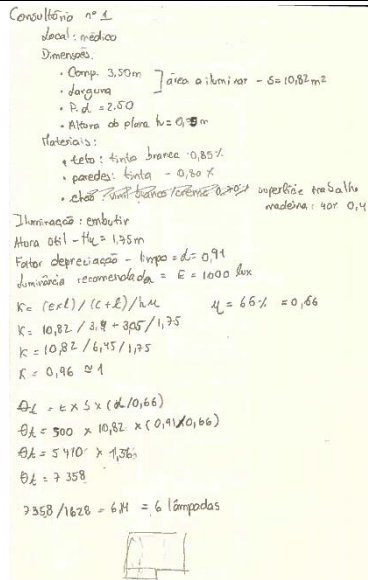 Consultório nº 1
Local: médico
Dimensões:
• Comp. 3,50m
• Largura
área a iluminar - S=10,82m²
• P.d = 2.50
• Altura do plano h=0,75m
Materiais:
• teto: tinta branca 0,85%
• paredes: tinta - 0,80%
• chão: vinil branco/creme 0,70%
superfície trabalho
madeira: 40% 0,4
Iluminação: embutir
Altura útil - Hu = 1,75m
Fator depreciação - limpo = d = 0,91
Luminância recomendada = E = 1000 lux
K = (c×l) / (c+l) / hu
μ = 66% = 0,66
K = 10,82 / 3,4 + 3,05 / 1,75
K = 10,82 / 6,45 / 1,75
K = 0,96 ≅ 1
Øt = E × S × (d/0,66)
Øt = 500 × 10,82 × (0,91/0,66)
Øt = 5410 × 1,36
Øt = 7 358
7358/1628 = 6 lâmpadas